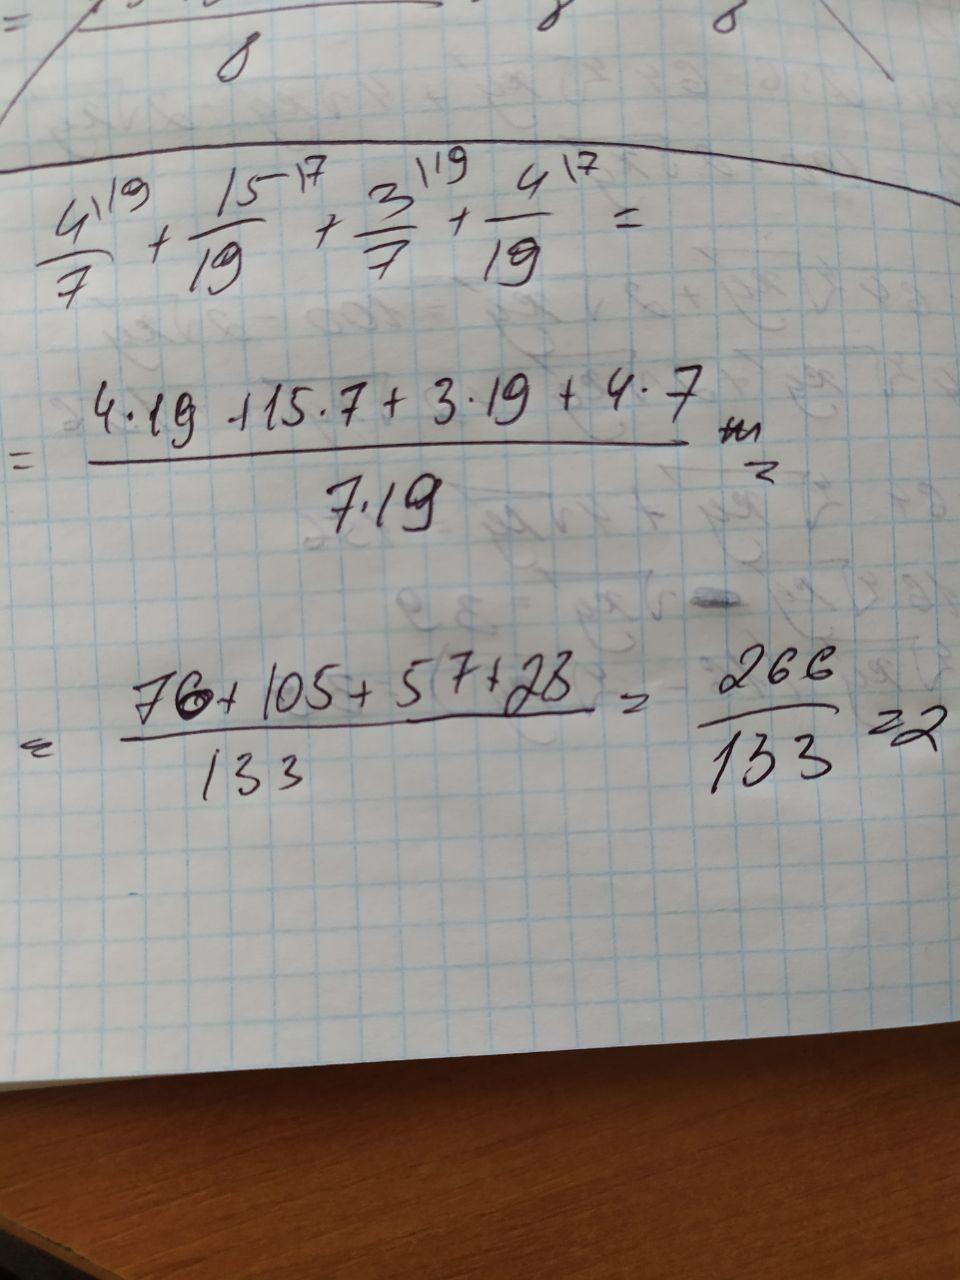 =
8 8 8
4\19/7 + 15\7/19 + 3\19/7 + 4\7/19 =
= (4·19 + 15·7 + 3·19 + 4·7)/(7·19) =
= (76 + 105 + 57 + 28)/133 = 266/133 = 2